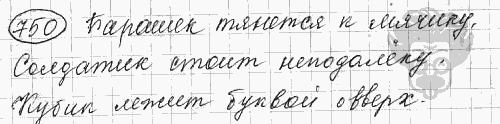 750 Барашек тянется к мячику.
Солдатик стоит неподалёку.
Кубик лежит буквой вверх.